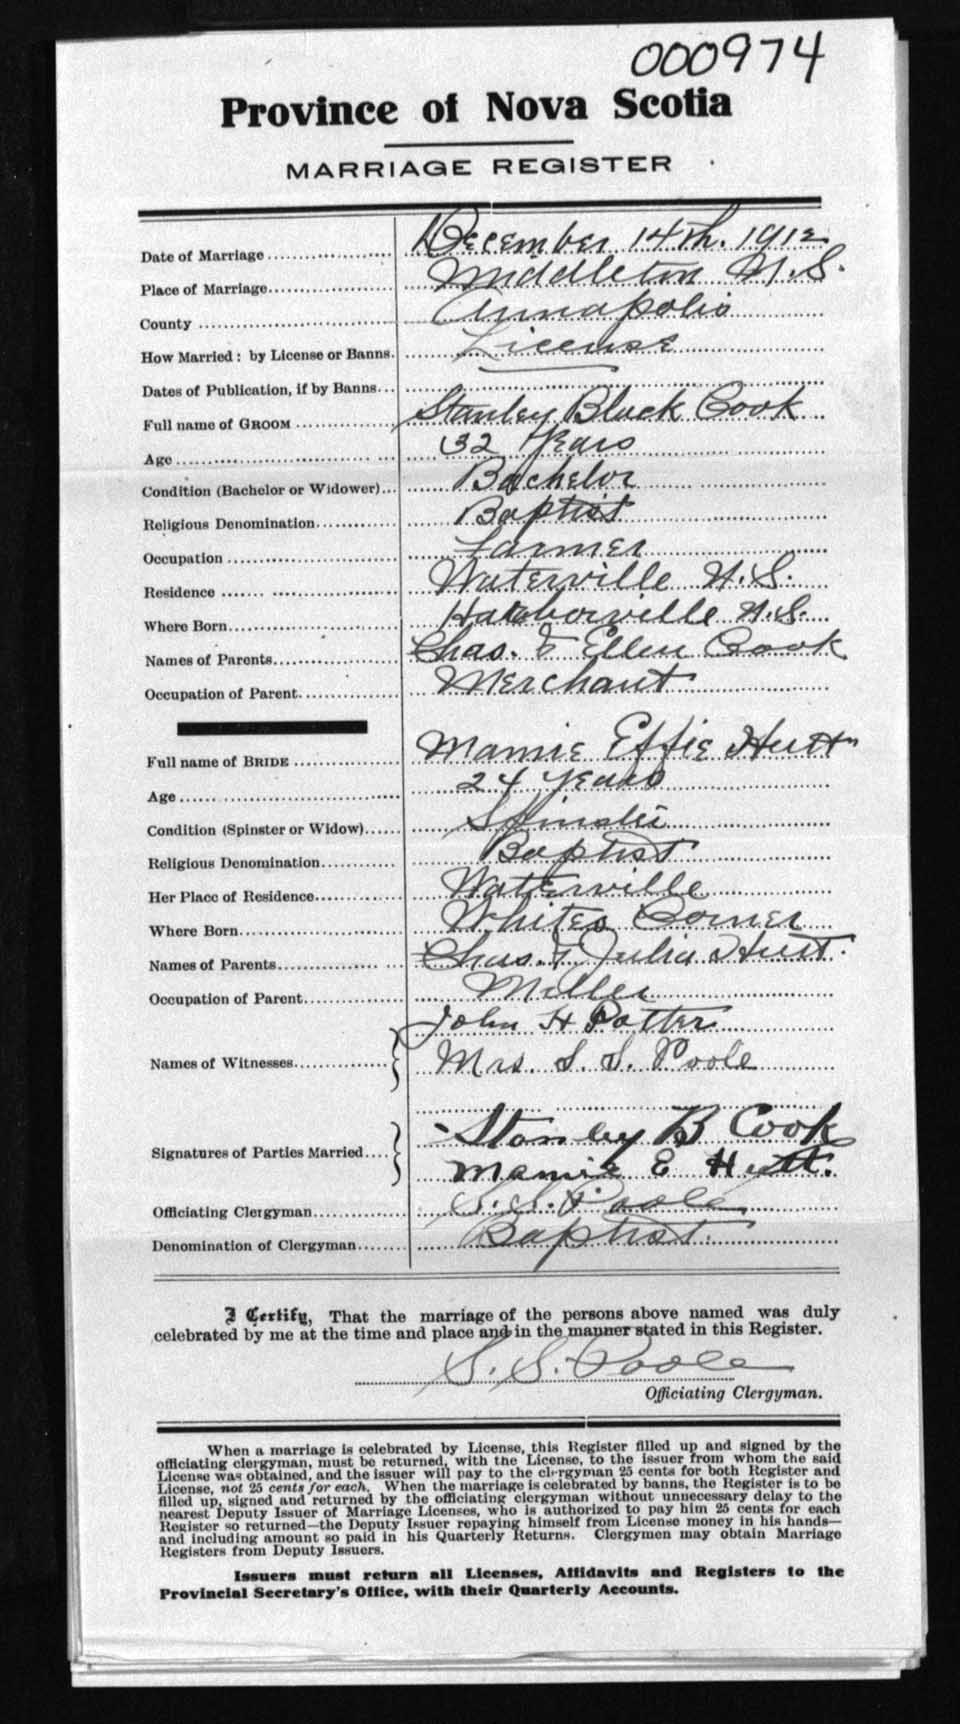 000974
Province of Nova Scotia
MARRIAGE REGISTER
Date of Marriage December 14th. 1912
Place of Marriage Middleton N.S.
County Annapolis
How Married: by License or Banns. License
Dates of Publication, if by Banns
Full name of GROOM Stanley Black Cook
Age 32 Years
Condition (Bachelor or Widower) Bachelor
Religious Denomination Baptist
Occupation Farmer
Residence Waterville N.S.
Where Born Harborville N.S.
Names of Parents Chas. & Ellen Cook
Occupation of Parent Merchant
Full name of BRIDE Mamie Effie Hutt
Age 24 years
Condition (Spinster or Widow) Spinster
Religious Denomination Baptist
Her Place of Residence Waterville
Where Born Whites Corner
Names of Parents Chas. & Julia Hutt.
Occupation of Parent Miller
John H Potter
Names of Witnesses Mrs. S. S. Poole
Stanley B Cook
Signatures of Parties Married
Mamie E Hutt.
Officiating Clergyman S. S. Poole
Denomination of Clergyman Baptist.
I Certify, That the marriage of the persons above named was duly
celebrated by me at the time and place and in the manner stated in this Register.
S. S. Poole
Officiating Clergyman.
When a marriage is celebrated by License, this Register filled up and signed by the
officiating clergyman, must be returned, with the License, to the issuer from whom the said
License was obtained, and the issuer will pay to the clergyman 25 cents for both Register and
License, not 25 cents for each. When the marriage is celebrated by banns, the Register is to be
filled up, signed and returned by the officiating clergyman without unnecessary delay to the
nearest Deputy Issuer of Marriage Licenses, who is authorized to pay him 25 cents for each
Register so returned—the Deputy Issuer repaying himself from License money in his hands—
and including amount so paid in his Quarterly Returns. Clergymen may obtain Marriage
Registers from Deputy Issuers.
Issuers must return all Licenses, Affidavits and Registers to the
Provincial Secretary's Office, with their Quarterly Accounts.